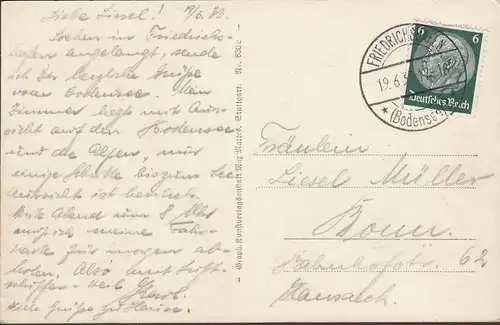 Liebe Liesel! 19/6. 33.
Soeben in Friedrichs-
hafen angelangt, sende
ich Dir herzliche Grüße
vom Bodensee. Mein
Zimmer liegt mit Aus-
sicht auf den Bodensee
und die Alpen, nur
einige Schritte bis zum See
Aussicht ist herrlich.
Heute Abend um 8 Uhr
muß ich meine Fahr-
karte für morgen ab-
holen. Also mit Luft-
schiffer-Heil Karl.
Viele Grüße zu Hause.
Graph. Kunstverlagsanstalten Stuttgart. Nr. 630
FRIEDRICHS
19.6.3
(Bodensee)
6 6
Deutsches Reich
Fräulein
Liesel Müller
Bonn
Bahnhofstr. 62
Hansaeck.